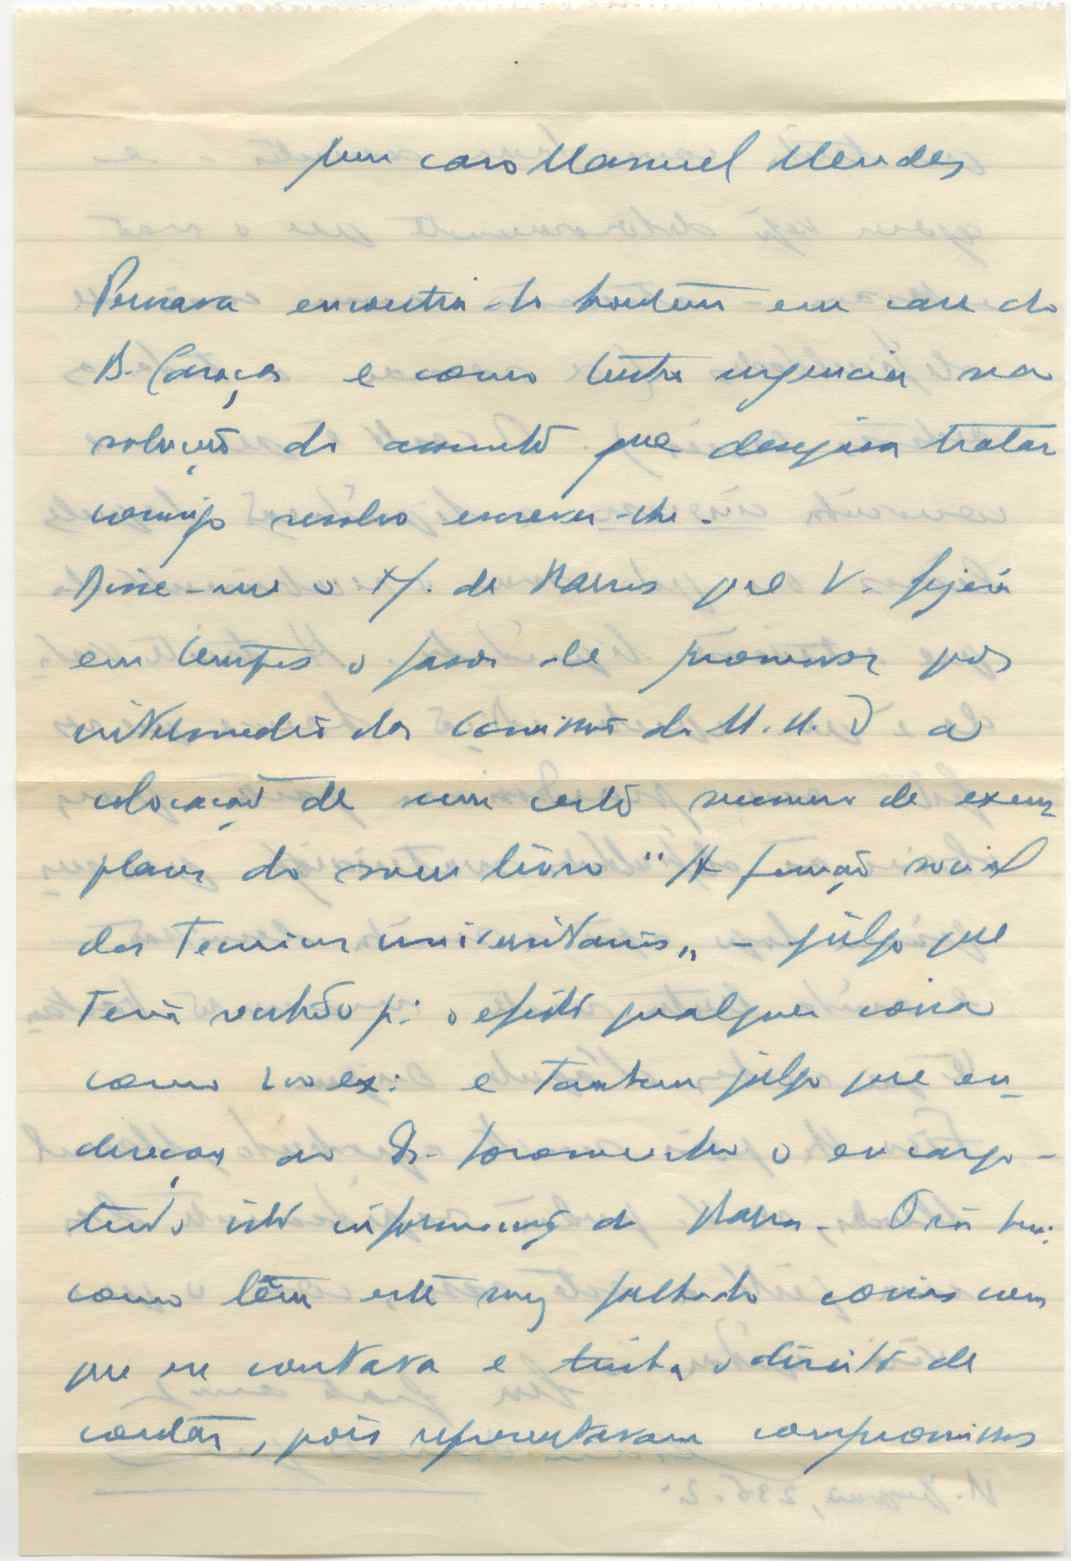 Meu caro Manuel Mendes
Pensava encontra-lo hontem em casa do
B. Caraça e como tinha urgencia na
solução do assunto que desejava tratar
comigo resolvo escrever-lhe.
Disse-me o H. de Barros que V. fizera
em tempos o favor de promover por
intermedio da Comissão do M. U. D a
colocação de um certo numero de exem
plares do seu livro "A função social
dos Tecnicos universitarios„ - julgo que
Teria recebido p: o efeito qualquer coisa
como 200 ex: e tambem julgo que en-
dereçou ao Dr. o encargo -
tudo isto informação do Barros. Ora
como têm este mez falhado coisas com
que eu contava e tinha o direito de
contar, pois representavam compromissos